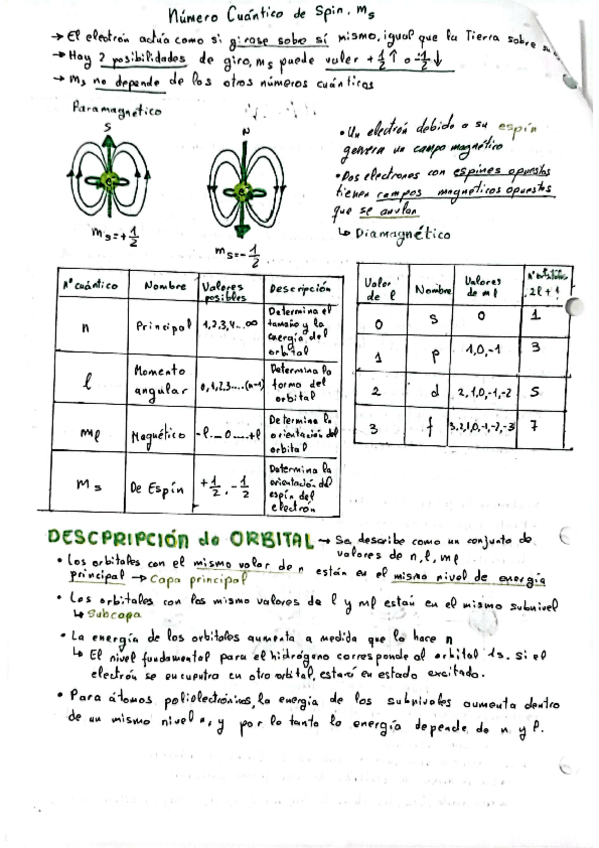 Número Cuántico de Spin. ms
→ El electrón actúa como si girase sobe sí mismo, igual que la Tierra sobre su
→ Hay 2 posibilidades de giro, ms puede valer + 1/2 ↑ o -1/2 ↓
→ ms no depende de los otros números cuánticos
Paramagnético
S
N
ms=+1/2
ms=-1/2
• Un electrón debido a su espín
genera un campo magnético
• Dos electrones con espines opuestos
tienen campos magnéticos opuestos
que se anulan
↳ Diamagnético
Nº cuántico Nombre Valores posibles Descripción
n Principal 1,2,3,4...∞ Determina el tamaño y la energía del orbital
l Momento angular 0,1,2,3....(n-1) Determina la forma del orbital
ml Magnético -l...0....+l Determina la orientación del orbital
ms De Espín +1/2, -1/2 Determina la orientación del espín del electrón
Valor de l Nombre Valores de ml Nº orbitales 2l+1
0 s 0 1
1 p 1,0,-1 3
2 d 2,1,0,-1,-2 5
3 f 3,2,1,0,-1,-2,-3 7
DESCPRIPCIÓN de ORBITAL → Se describe como un conjunto de
valores de n, l, ml
• Los orbitales con el mismo valor de n están en el mismo nivel de energía
principal → Capa principal
• Los orbitales con los mismo valores de l y ml están en el mismo subnivel
↳ Subcapa
• La energía de los orbitales aumenta a medida que lo hace n
↳ El nivel fundamental para el hidrógeno corresponde al orbital 1s. si el
electrón se encuentra en otro orbital, estará en estado excitado.
• Para átomos polielectrónicos, la energía de los subniveles aumenta dentro
de un mismo nivel n, y por lo tanto la energía depende de n y l.